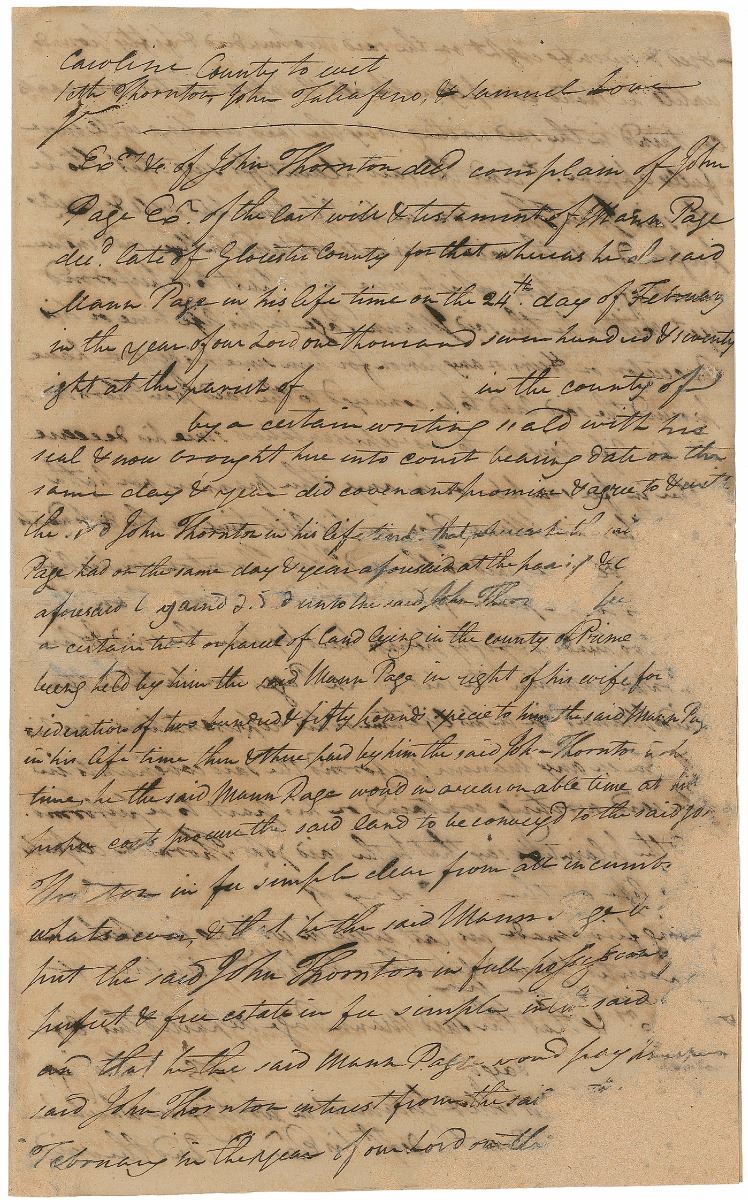 Caroline County to wit
Seth Thornton, John Taliaferro, & Samuel
Exrs &c of John Thornton decd. complain of John
Page Exr. of the last will & testament of Mann Page
decd. late of Gloster County for that whereas he the said
Mann Page in his life time on the 24th. day of February
in the year of our Lord one thousand seven hundred & seventy
ight at the parish of in the county of
by a certain writing seald with his
seal & now brought here into court bearing date on the
same day & year did covenant promise & agree to & with
the said John Thornton in his life time that whereas he the said
Page had on the same day & year aforesaid at the parish &c
aforesaid unto the said John Thor
a certain tract or parcel of land lying in the county of Prince
being held by him the said Mann Page in right of his wife for
sideration of two hundred & fifty pounds specie to him the said Mann Pag
in his life time then & there paid by him the said John Thornton in
time, he the said Mann Page woud in a reasonable time at his
proper costs procure the said land to be conveyd to the said Jo
Thornton in fee simple clear from all incumb
whatsoever, & that he the said Mann Page
put the said John Thornton in full possession
perfect & free estate in fee simple in said
and that he the said Mann Page woud pay
said John Thornton interest from the sai
February in the year of our Lord on th